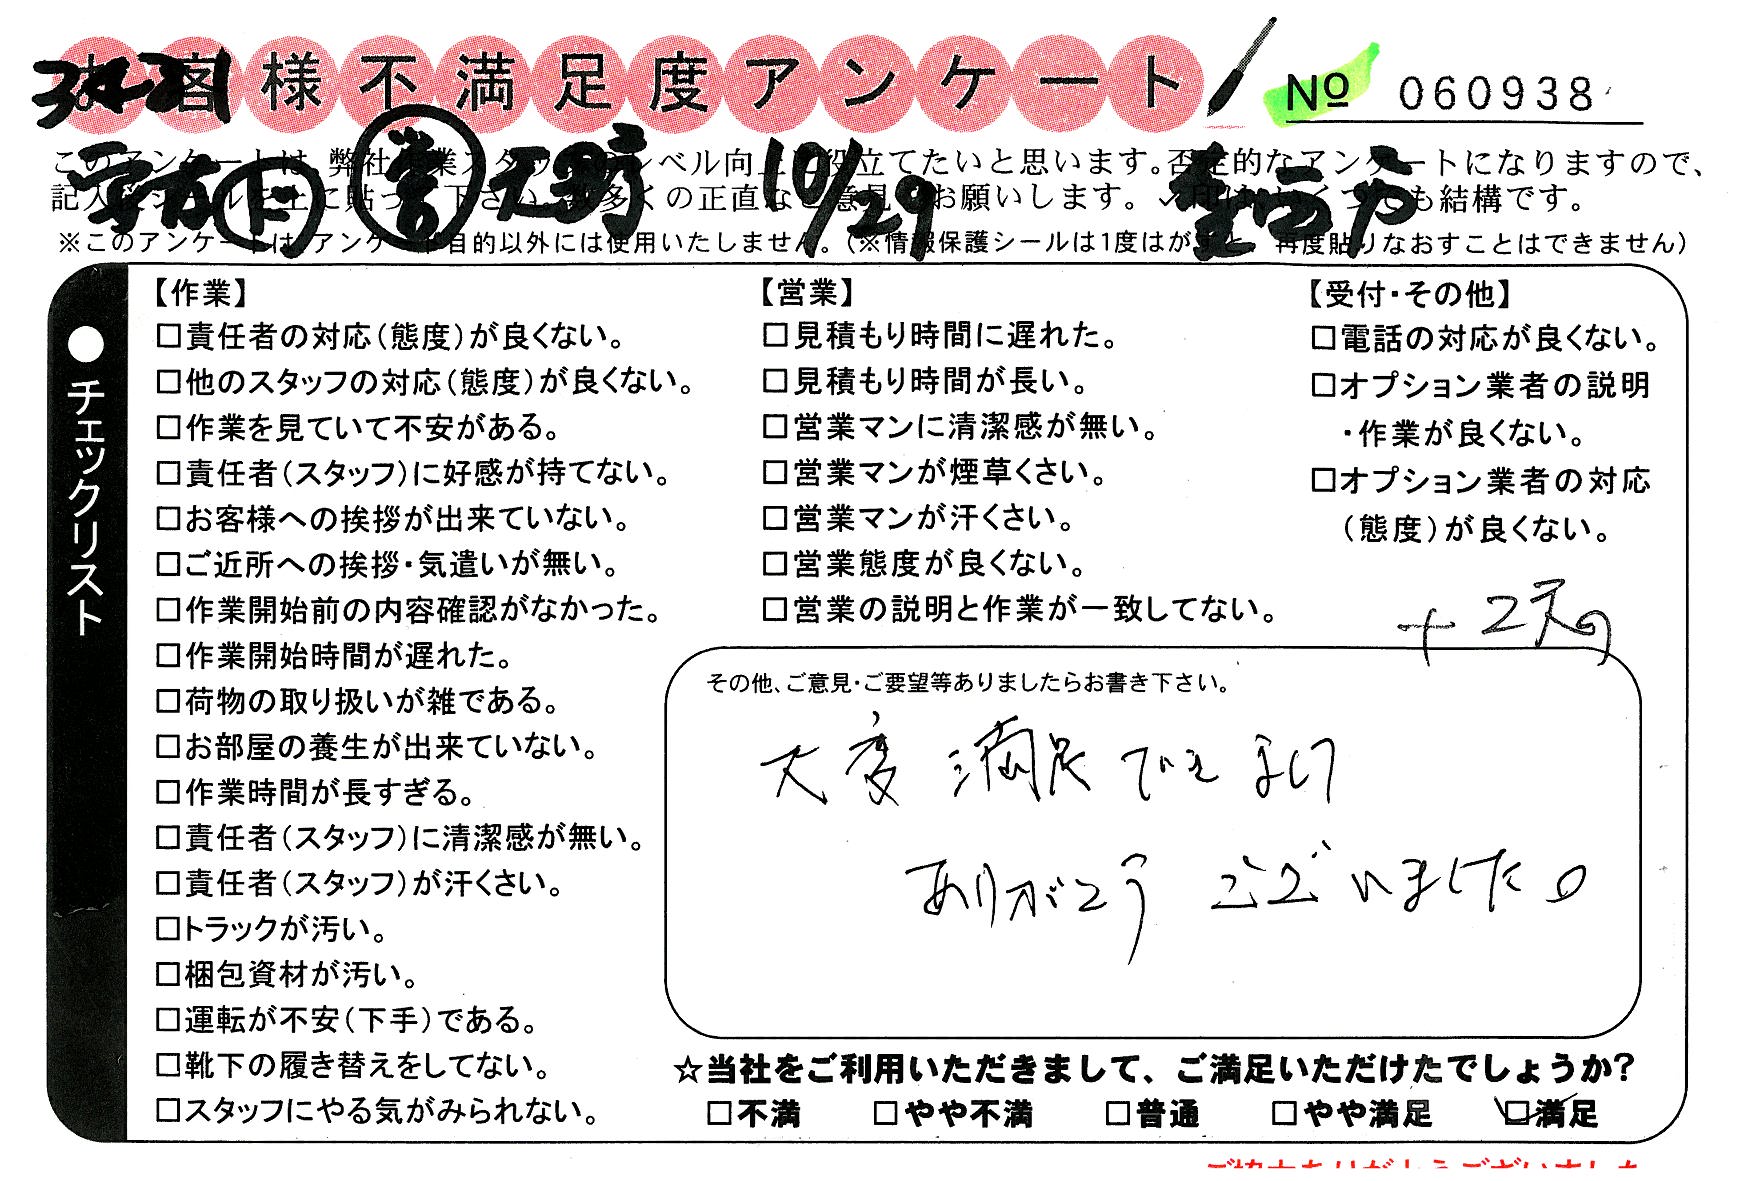 お客様不満足度アンケート
№ 060938
このアンケートは、弊社作業スタッフのレベル向上に役立てたいと思います。否定的なアンケートになりますので、
記入後シールを上に貼って下さい。数多くの正直なご意見をお願いします。✓印はいくつでも結構です。
10/29
※このアンケートは、アンケート目的以外には使用いたしません。(※情報保護シールは1度はがすと、再度貼りなおすことはできません)
●チェックリスト
【作業】
□責任者の対応(態度)が良くない。
□他のスタッフの対応(態度)が良くない。
□作業を見ていて不安がある。
□責任者(スタッフ)に好感が持てない。
□お客様への挨拶が出来ていない。
□ご近所への挨拶・気遣いが無い。
□作業開始前の内容確認がなかった。
□作業開始時間が遅れた。
□荷物の取り扱いが雑である。
□お部屋の養生が出来ていない。
□作業時間が長すぎる。
□責任者(スタッフ)に清潔感が無い。
□責任者(スタッフ)が汗くさい。
□トラックが汚い。
□梱包資材が汚い。
□運転が不安(下手)である。
□靴下の履き替えをしてない。
□スタッフにやる気がみられない。
【営業】
□見積もり時間に遅れた。
□見積もり時間が長い。
□営業マンに清潔感が無い。
□営業マンが煙草くさい。
□営業マンが汗くさい。
□営業態度が良くない。
□営業の説明と作業が一致してない。
【受付・その他】
□電話の対応が良くない。
□オプション業者の説明
・作業が良くない。
□オプション業者の対応
(態度)が良くない。
その他、ご意見・ご要望等ありましたらお書き下さい。
大変満足できました
ありがとうございました。
☆当社をご利用いただきまして、ご満足いただけたでしょうか?
□不満 □やや不満 □普通 □やや満足 □満足
ご協力ありがとうございました